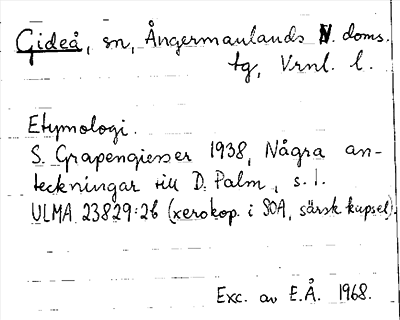 Gideå, sn, Ångermanlands N. doms.
tg, Vrnl. l.
Etymologi.
S. Grapengiesser 1938, Några an-
teckningar till D. Palm, s. 1.
ULMA 23829:26 (xerokop. i SOA, särsk kapsel).
Exc. av E.Å. 1968.